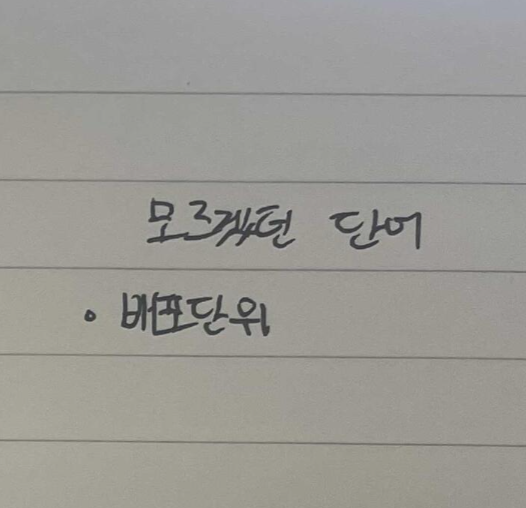 모르겠던 단어
• 배포단위